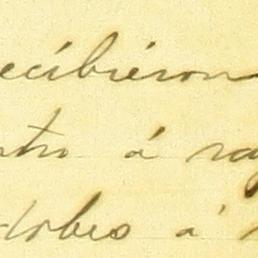 ecibieron
ntro á raz
dobes á